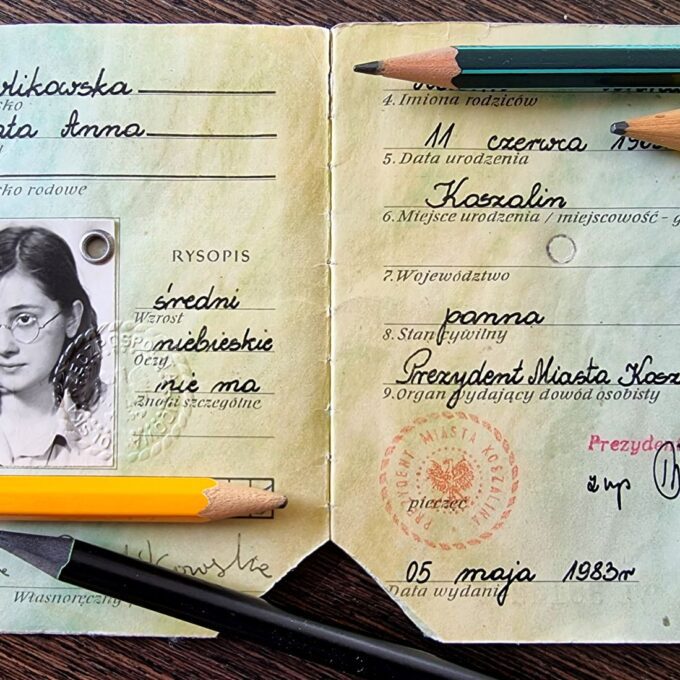 rlikowska
sko
ata Anna
sko rodowe
RYSOPIS
średni
Wzrost
niebieskie
Oczy
nie ma
Znaki szczególne
kowska
Własnoręczny p
4. Imiona rodziców
11 czerwca 19
5. Data urodzenia
Koszalin
6. Miejsce urodzenia / miejscowość - g
7. Województwo
panna
8. Stan cywilny
Prezydent Miasta Kosz
9. Organ wydający dowód osobisty
PREZYDENT MIASTA KOSZALINA
pieczęć
Prezyden
z up
05 maja 1983r
Data wydani